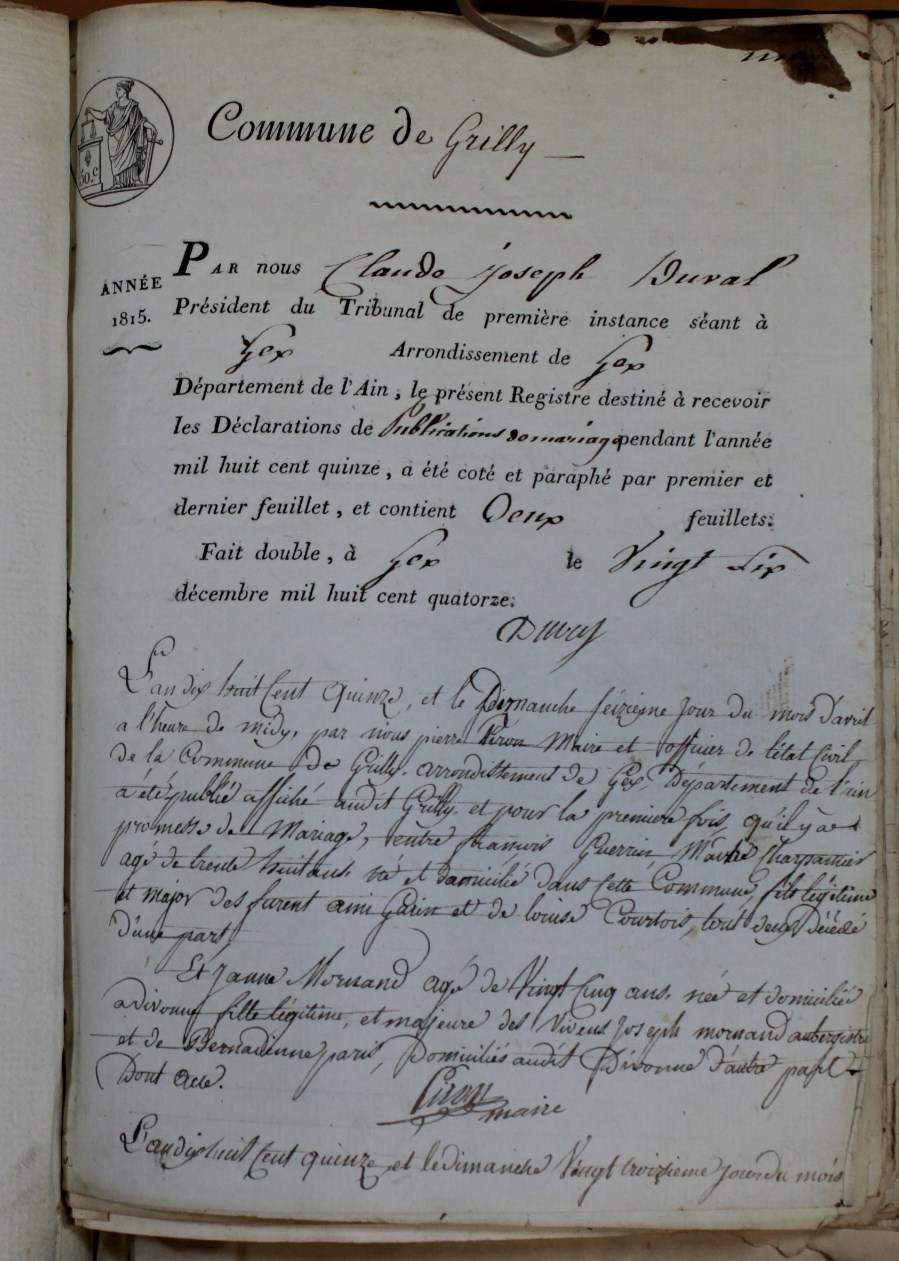 50.c
Commune de Grilly
ANNÉE
1815.
PAR nous Claude Joseph Duval
Président du Tribunal de première instance séant à
Gex Arrondissement de Gex
Département de l'Ain, le présent Registre destiné à recevoir
les Déclarations de Publications de mariage pendant l'année
mil huit cent quinze, a été coté et paraphé par premier et
dernier feuillet, et contient Deux feuillets.
Fait double, à Gex le Vingt Six
décembre mil huit cent quatorze.
Duval
L'an dix huit Cent Quinze, et le Dimanche seizieme Jour du mois d'avril
a l'heure de midy, par nous pierre Maire et officier de l'état Civil
de la Commune de Grilly, arrondissement de Gex, Département de l'ain
a été publié affiché audit Grilly, et pour la premiere fois, qu'il y a
promesse de Mariage, entre francois Guerrin, Maitre Charpantier
agé de trente huit ans, né et domicilié dans Cette Commune, fils légitime
et major des furent ami Garin et de louise Courtois, tout deux Décédé
D'une part,
Et Janne Mornand agé de Vingt Cinq ans, née et domicilié
a divonne fille légitime, et majeure des Vivens Joseph mornand aubergiste
et de paris, Domiciliés audit Divonne d'autre part
Dont acte.
maire
L'an dix huit Cent quinze et le dimanche Vingt troizieme jour du mois